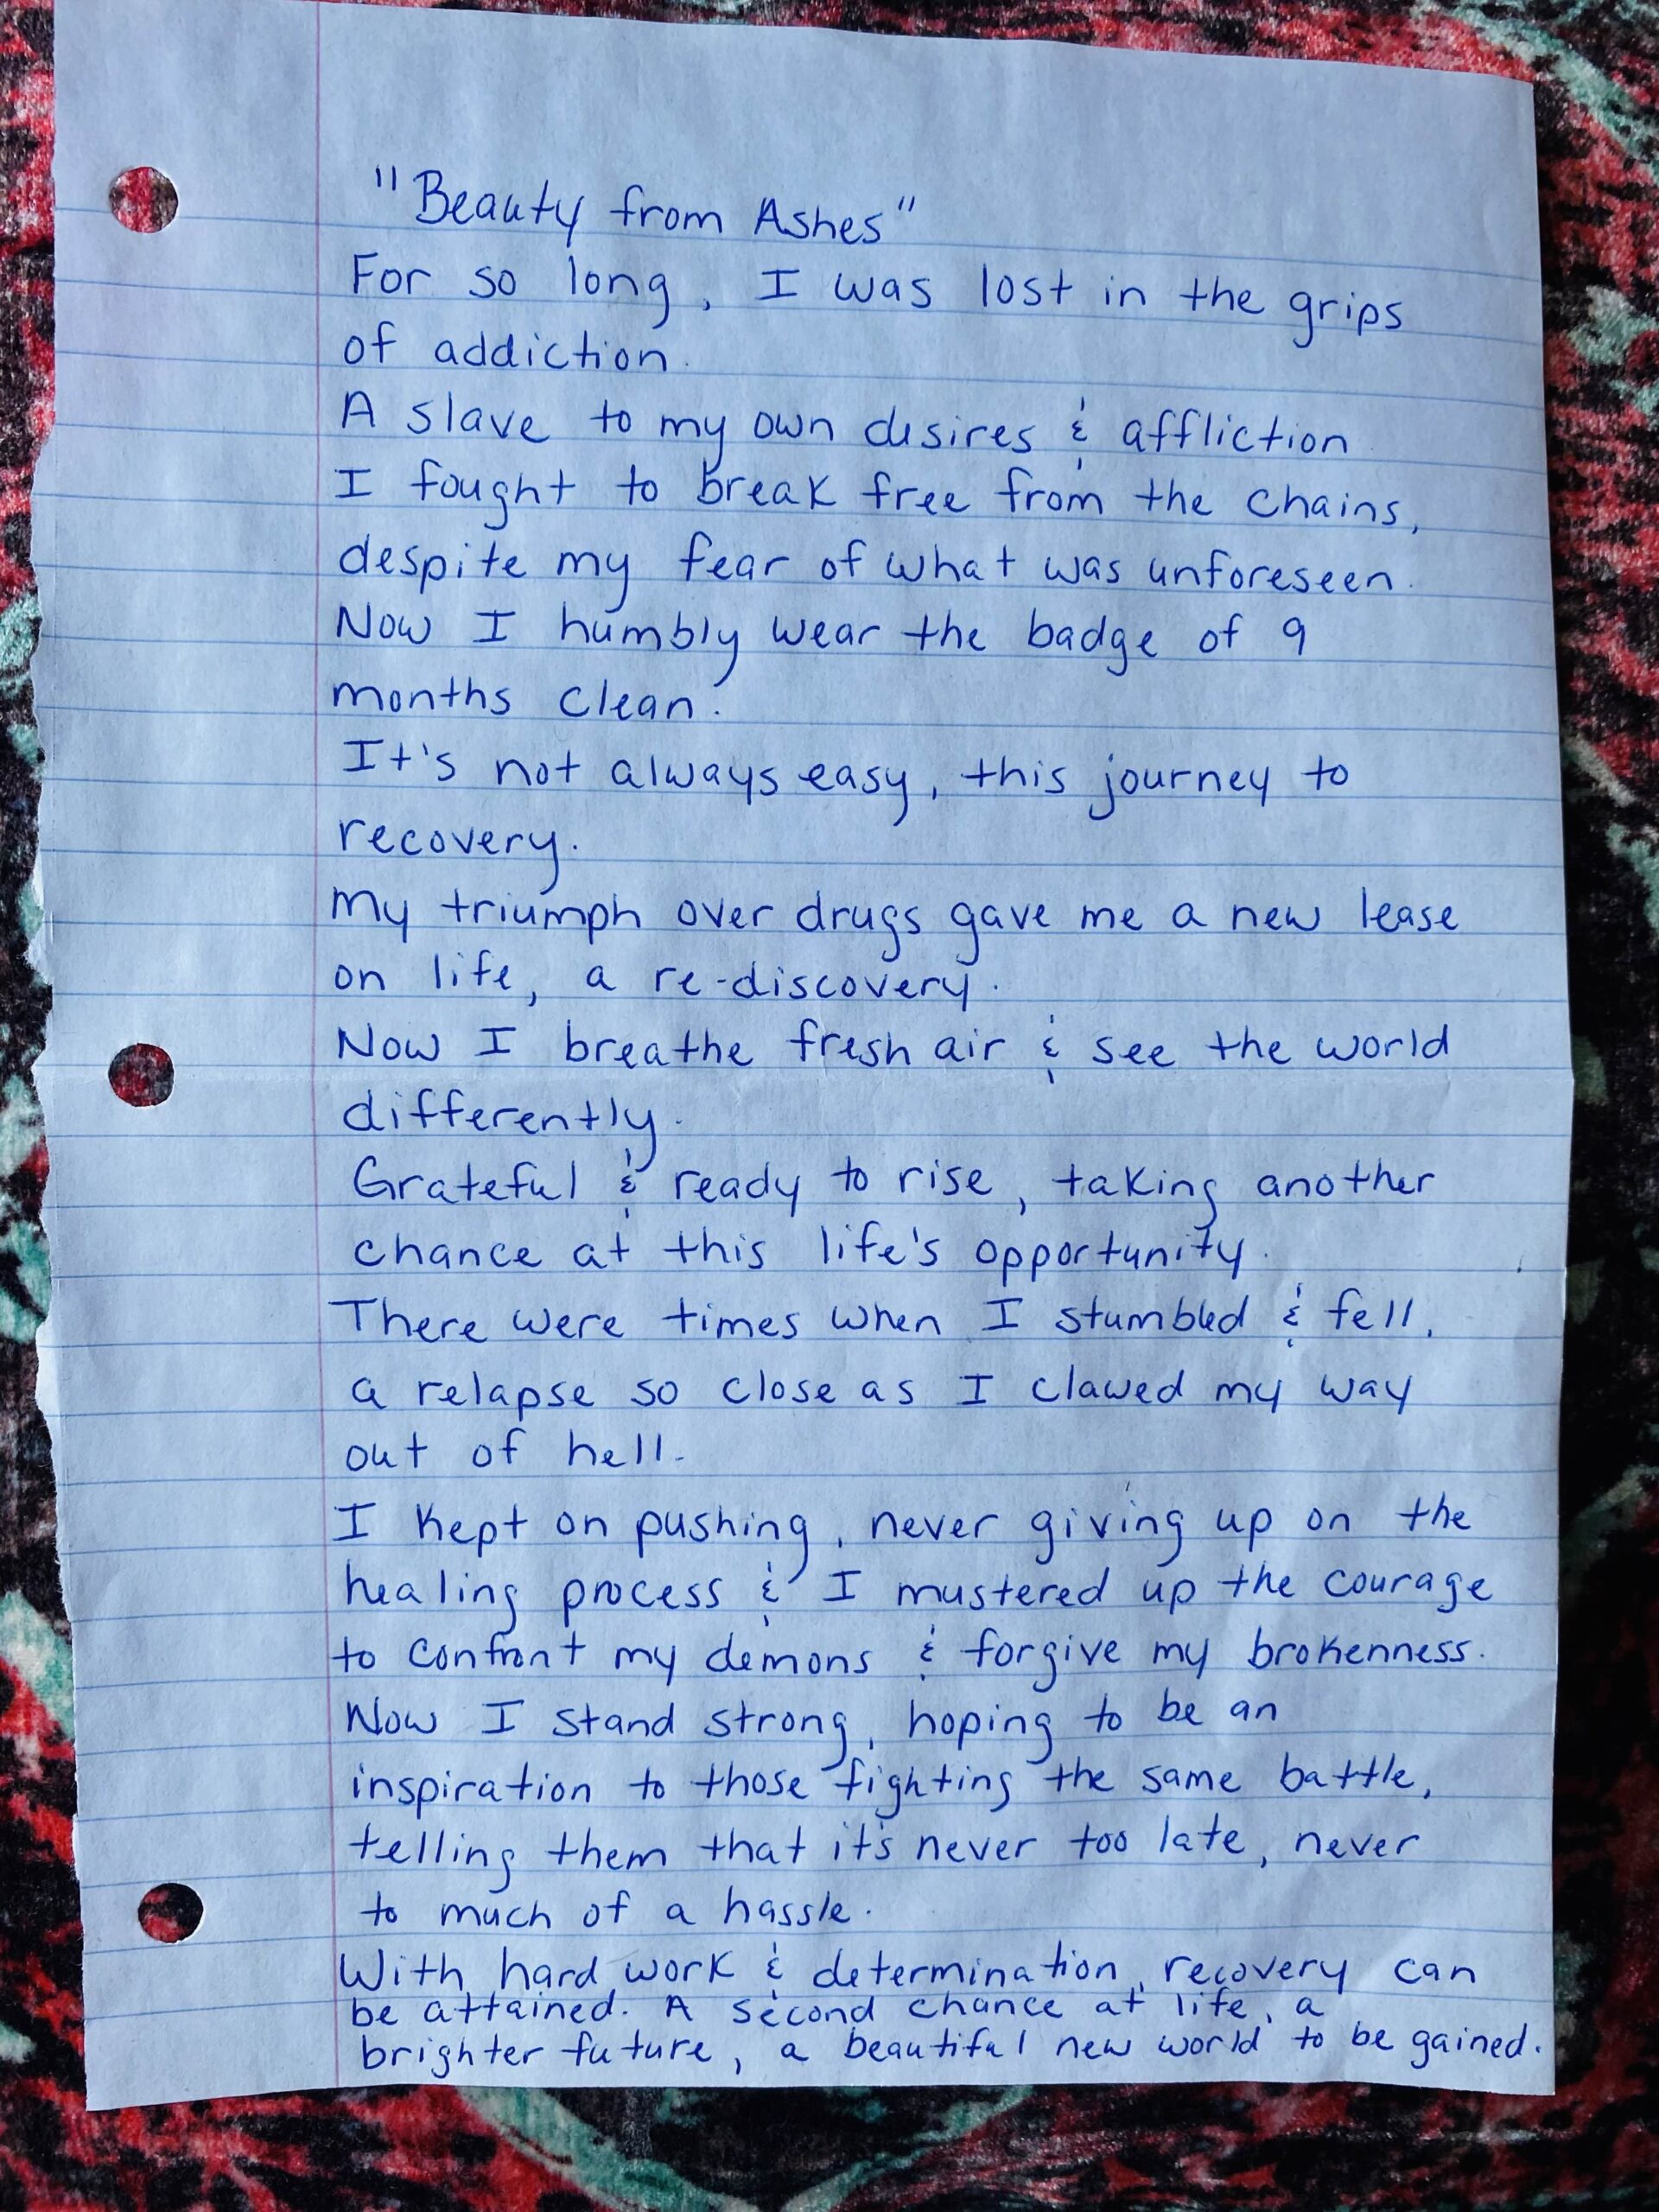 "Beauty from Ashes"
For so long, I was lost in the grips
of addiction.
A slave to my own desires & affliction
I fought to break free from the chains,
despite my fear of what was unforeseen.
Now I humbly wear the badge of 9
months clean.
It's not always easy, this journey to
recovery.
My triumph over drugs gave me a new lease
on life, a re-discovery.
Now I breathe fresh air & see the world
differently.
Grateful & ready to rise, taking another
chance at this life's opportunity.
There were times when I stumbled & fell,
a relapse so close as I clawed my way
out of hell.
I kept on pushing, never giving up on the
healing process & I mustered up the courage
to confront my demons & forgive my brokenness.
Now I stand strong, hoping to be an
inspiration to those fighting the same battle,
telling them that it's never too late, never
to much of a hassle.
With hard work & determination, recovery can
be attained. A second chance at life, a
brighter future, a beautiful new world to be gained.